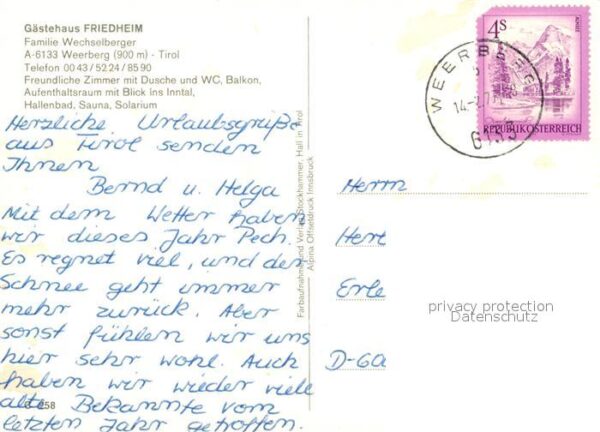 Gästehaus FRIEDHEIM
Familie Wechselberger
A-6133 Weerberg (900 m) - Tirol
Telefon 00 43 / 52 24 / 85 90
Freundliche Zimmer mit Dusche und WC, Balkon,
Aufenthaltsraum mit Blick ins Inntal,
Hallenbad, Sauna, Solarium
Herzliche Urlaubsgrüße
aus Tirol senden
Ihnen
Bernd u. Helga
Mit dem Wetter haben
wir dieses Jahr Pech.
Es regnet viel, und der
Schnee geht immer
mehr zurück. Aber
sonst fühlen wir uns
hier sehr wohl. Auch
haben wir wieder viele
alte Bekannte vom
letzten Jahr getroffen.
658
Farbaufnahme und Verlag Stockhammer, Hall in Tirol
Alpina Offsetdruck Innsbruck
4S
REPUBLIK ÖSTERREICH
WEERBERG
6133
Herrn
Herr
Erle
D-60
privacy protection
Datenschutz